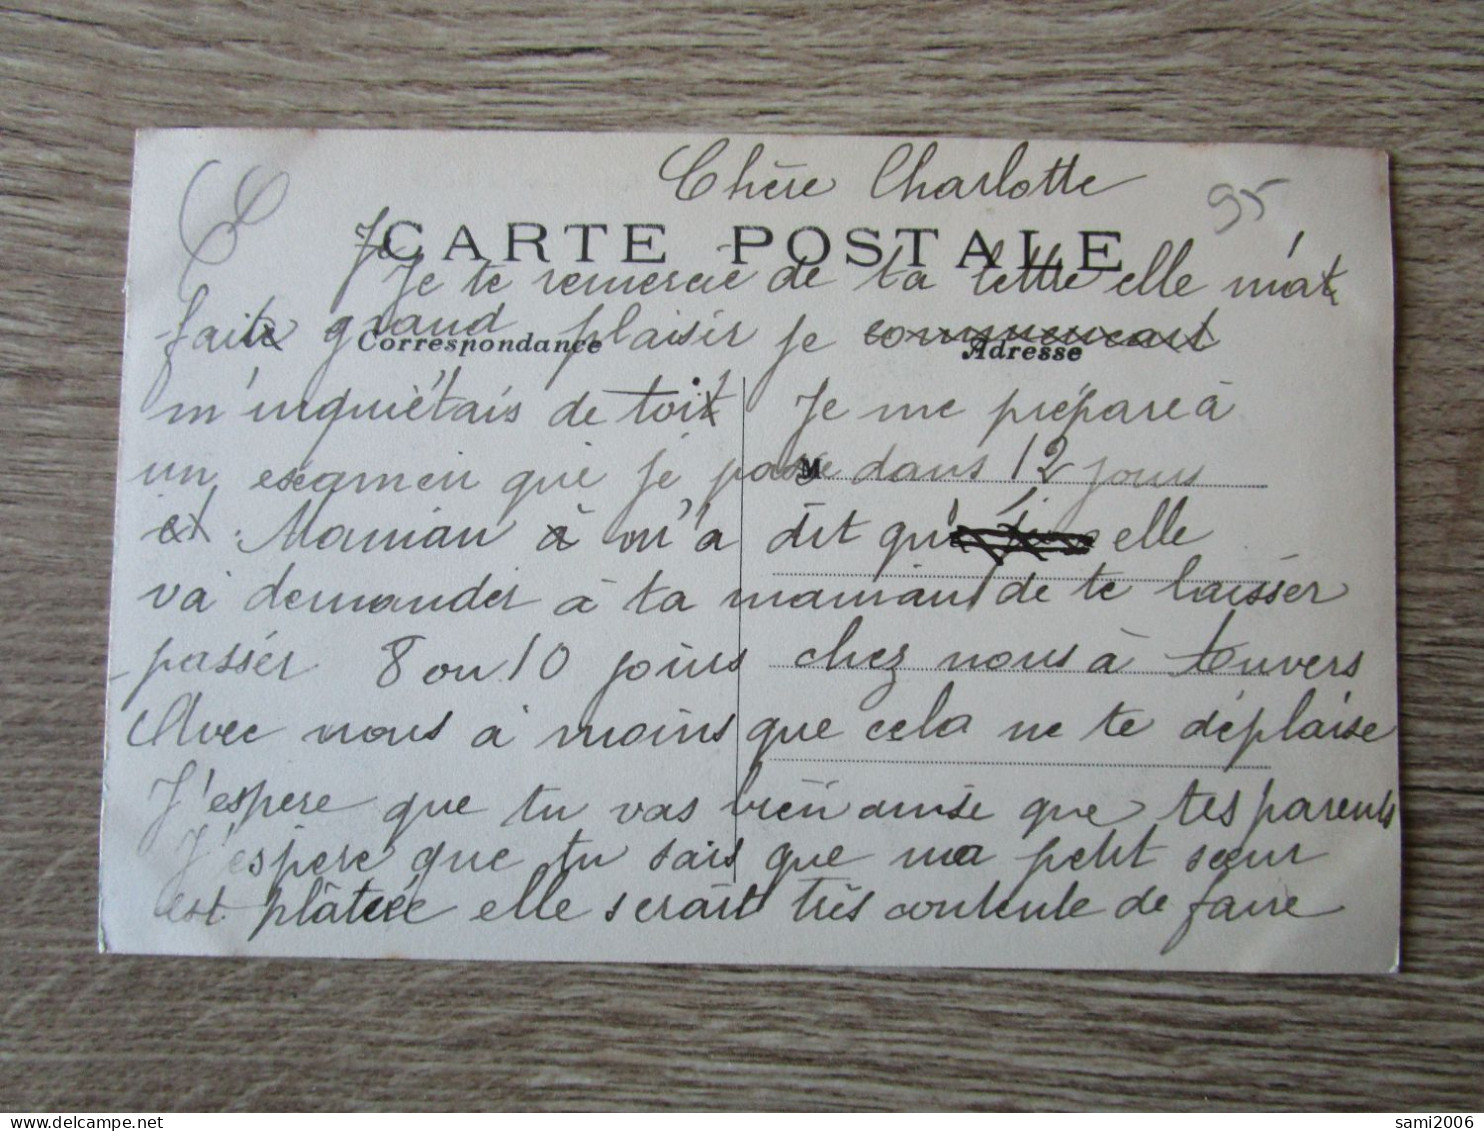 Chère Charlotte
95
CARTE POSTALE
Je te remercie de ta lettre elle m'a
fait grand plaisir je commencais
Correspondance
Adresse
m'inquiétais de toi Je me prépare à
un examein que je passe dans 12 jours
M
et Maman à m'a dit qu' elle
va demander à ta maman de te laisser
passér 8 ou 10 jours chez nous à Anvers
Avec nous à moins que cela ne te déplaise
J'espere que tu vas bien ainse que tes parents
J'espere que tu sais que ma petit sœur
est plâtrée elle serait très contente de faire
sami2006